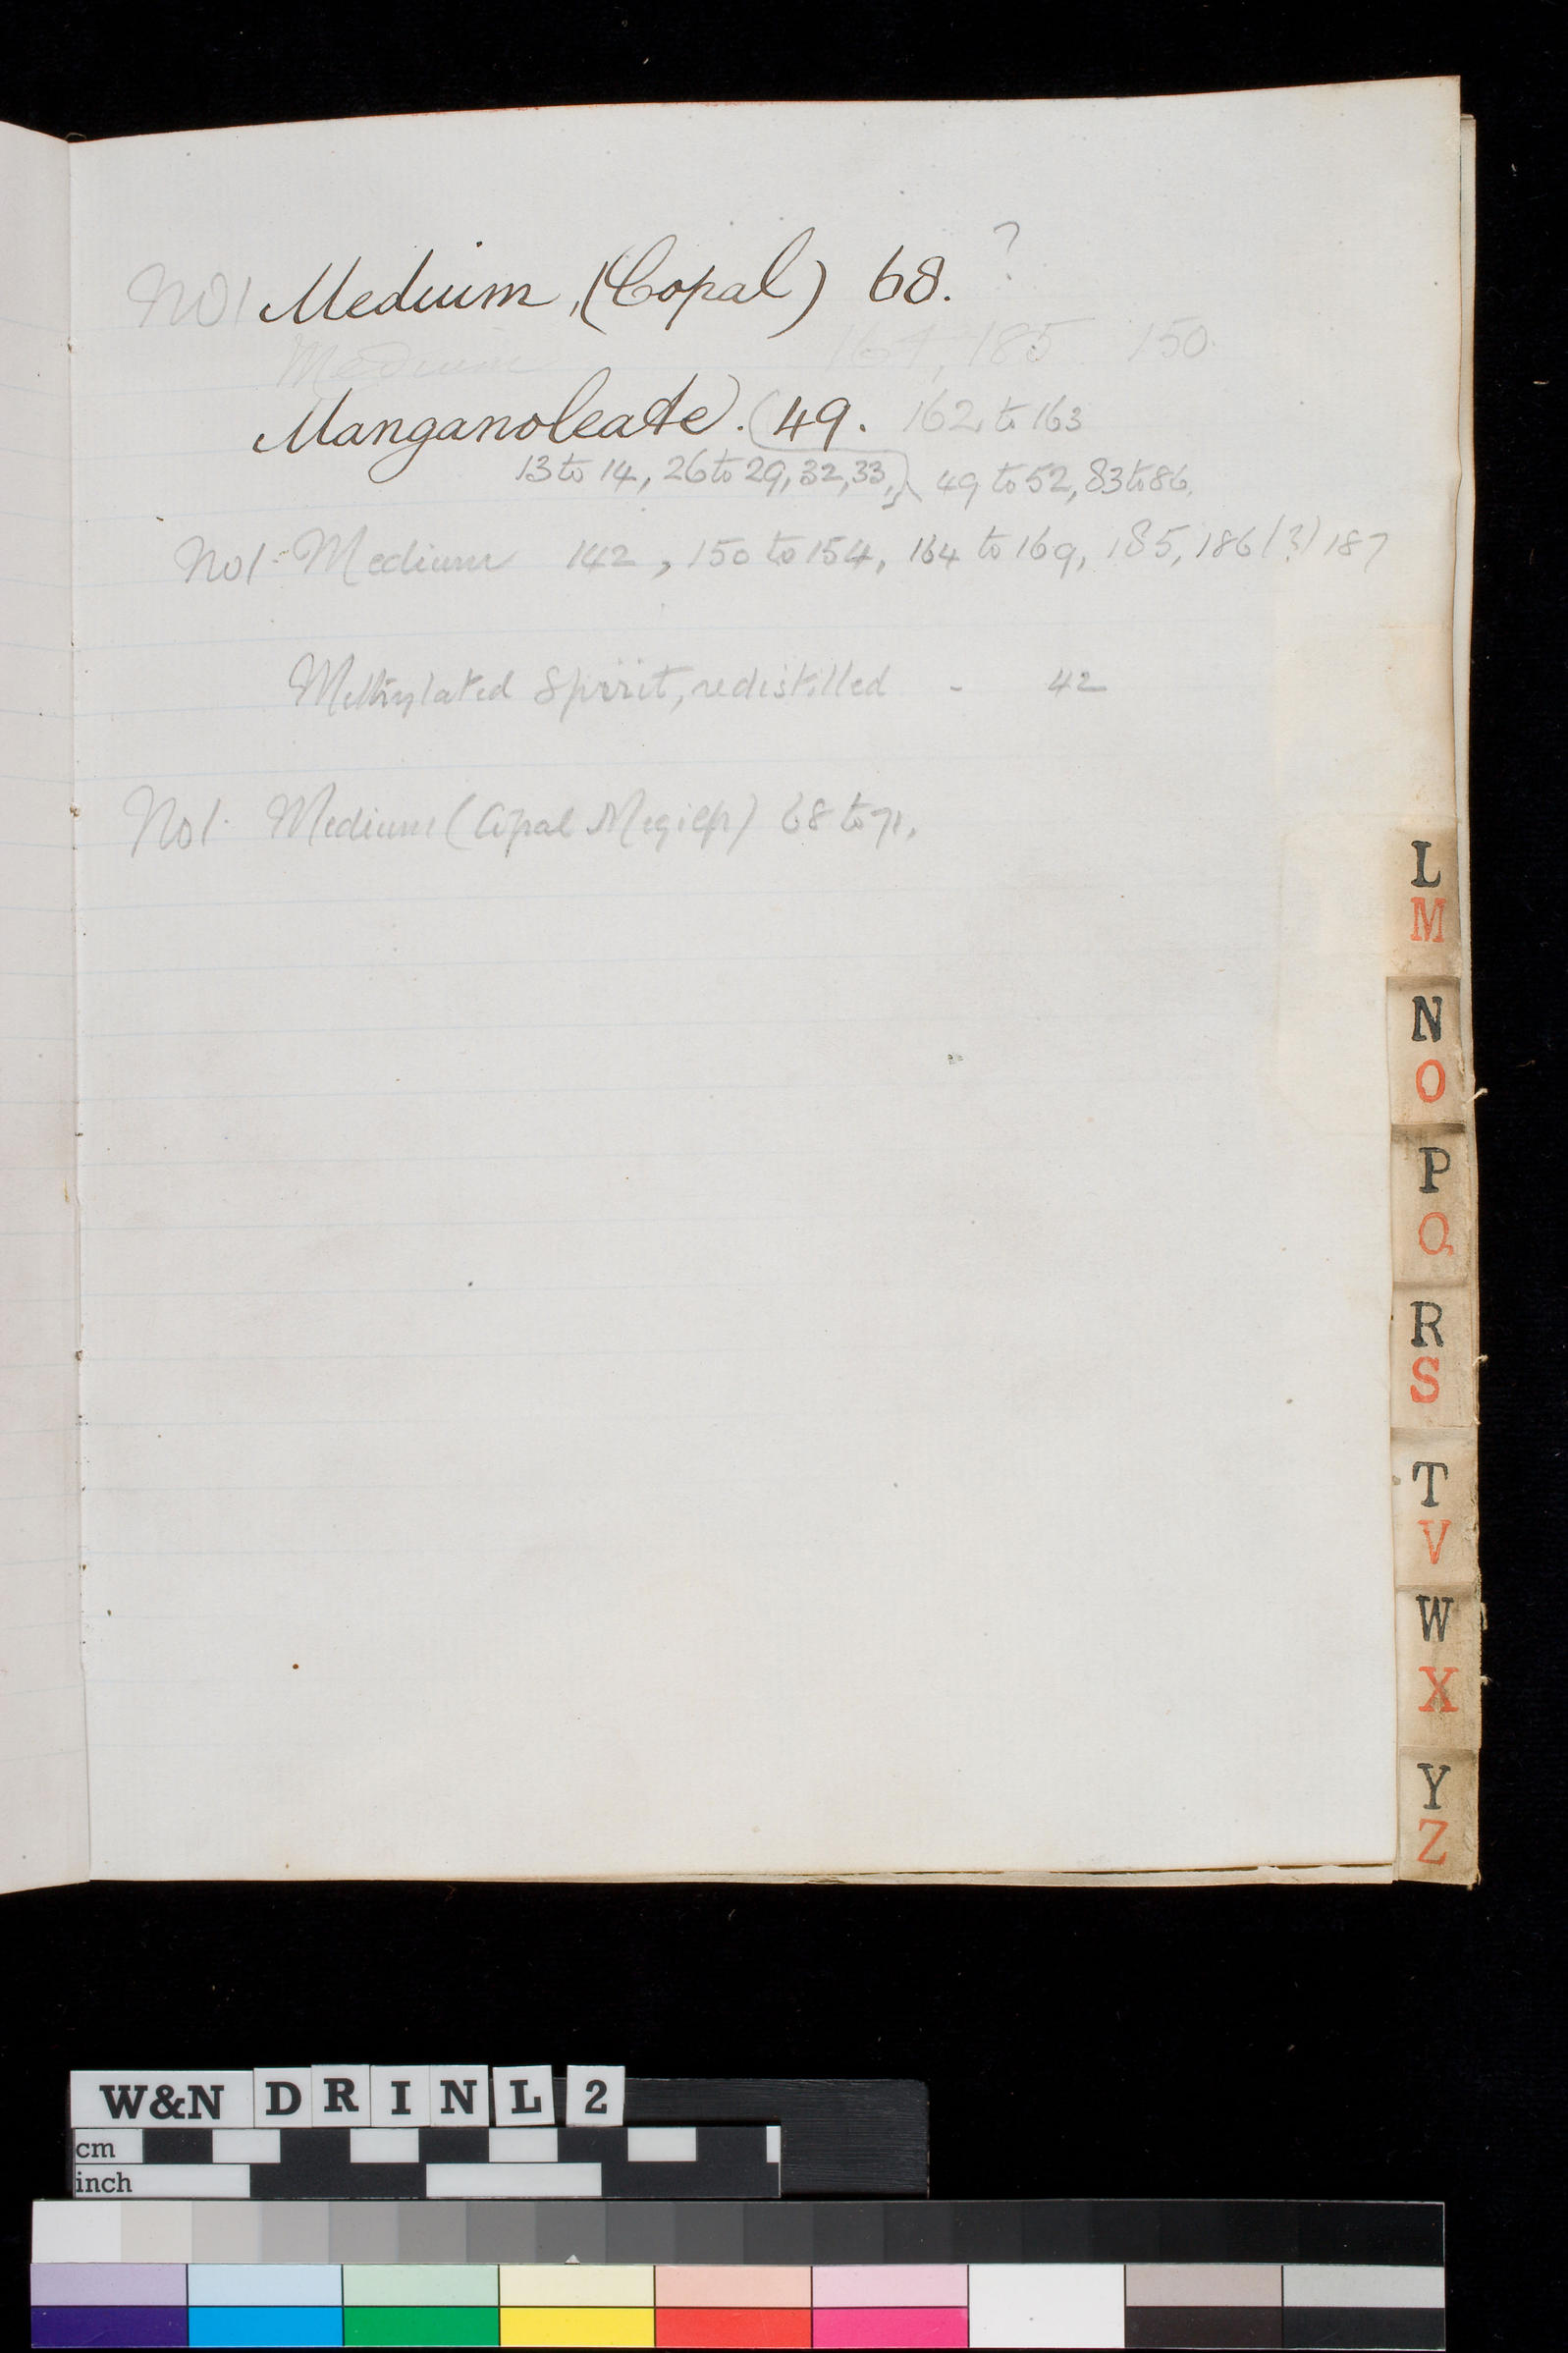 No1 Medium (Copal) 68. ?
Medium 164, 185 150.
Manganoleate. (49. 162 to 163
13 to 14, 26 to 29, 32, 33, 49 to 52, 83 to 86.
No1. Medium 142, 150 to 154, 164 to 169, 185, 186 (?) 187
Methylated Spirit, redistilled - 42
No1. Medium (Copal Megilp) 68 to 71.
L
M
N
O
P
Q
R
S
T
V
W
X
Y
Z
W&N D R I N L 2
cm
inch